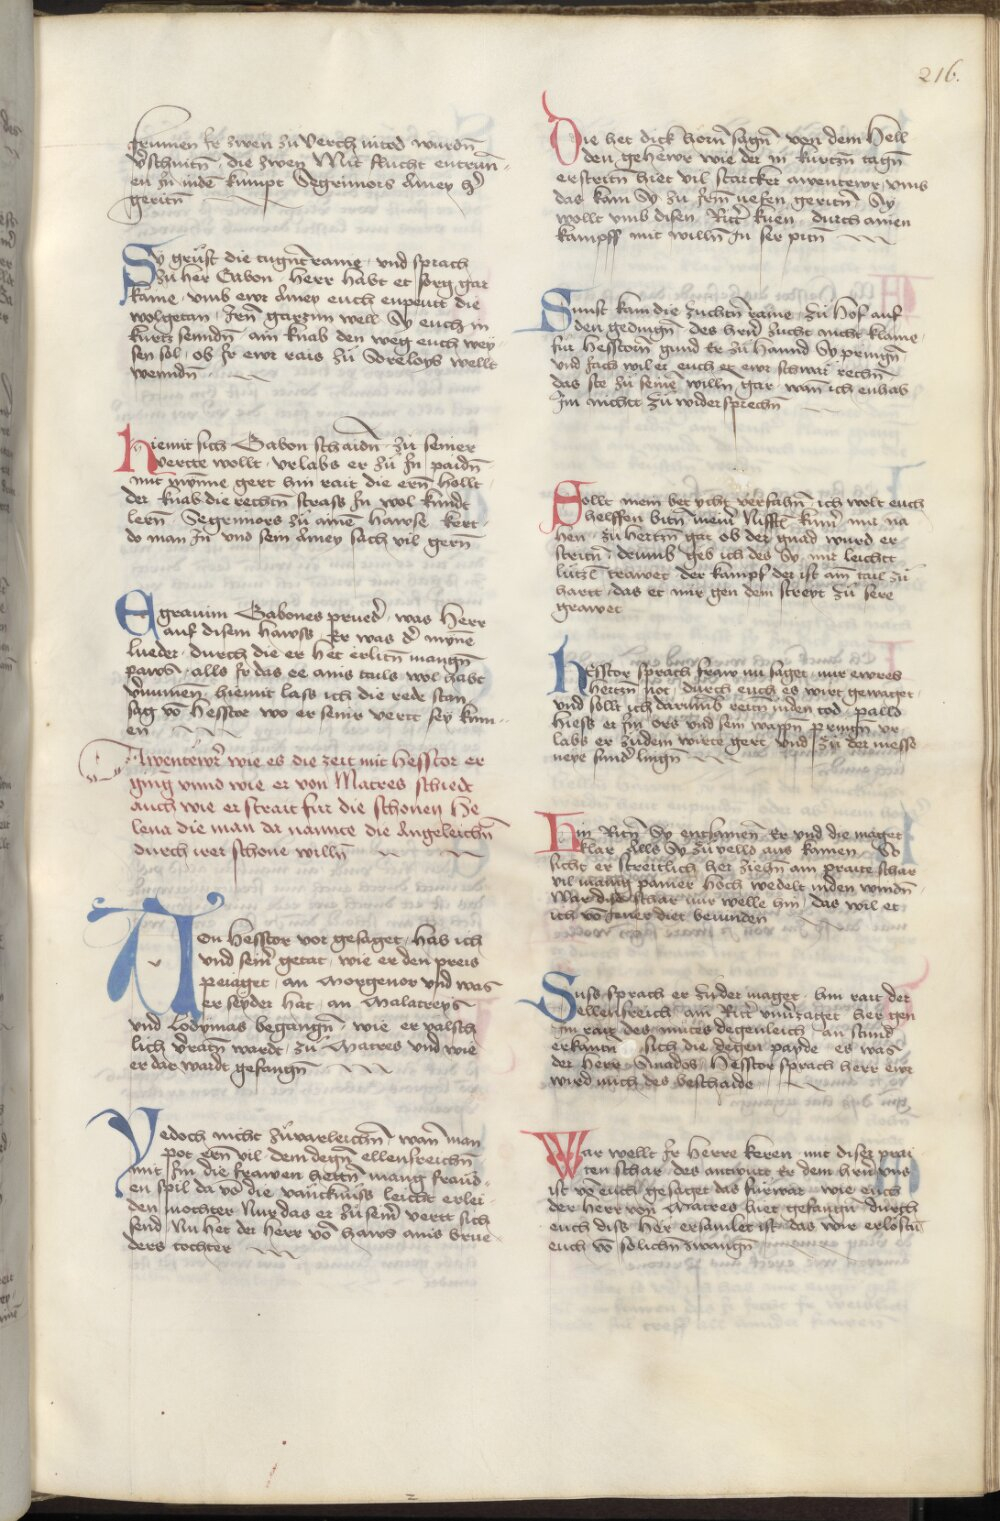 216.
frumen Ir zwen zu verch in tod wurdn̄
v̄schnitn̄ die zwen Mit flucht entran¬
en In inden kumpt Segrimors Amey h̄
geritn̄
Sy grust die tugntrame und sprach
zu her Gabon herr habt et sorg gar
kaine umb ewr Amey euch enpeutt die
wolgetan Irn̄ garzun well Sy euch in
kurtz senndn̄ ain knab den weg euch wey¬
sen sol ob Ir ewr rais zu Soreloys wellt
wenndn̄
Hiemit sich Gabon schaidn̄ zu seiner
vertte wollt urlabs er zu In paidn̄
mit mynne gert hin rait die ern̄ hollt
der knab die rechtn̄ strass In wol kundt
lern̄ Segrimors zu ainē hawse kert
do man In und sein Amey sach vil gern̄
Egravim Gabones prueđ was herr
auf disem hawss Er was đ mynē
lueder durch die er het erlitn̄ mangn̄
pawss alls Ir das ee ains tails wol habt
v̄numen hiemit lass ich die rede stan
sag vō Hesstor wo er seinr vertt sey kum¬
en
Awentewr̄ wie es die zeit mit Hesstor er
ging unnd wie er von Matres schiedt
auch wie er strait fur die schonen He
lena die man da nannte die Angeleichn̄
durch irer schone willn̄
Von Hesstor vor gesaget hab ich
und seinr getat wie er den preis
peiaget an Morgenor und was
er seyder hat an Malatreys
und Lodymas begangn̄ wie er valsch
lich v̄ratn̄ wardt zu Matres und wie
er dar wardt gefangn̄
Yedoch nicht zuvarleichn̄ wan̄ man
pot ern̄ vil dem degn̄ ellensreichn̄
mit Im die frawen hettn̄ mang fraud¬
en spil da vō die vancknuss leicht erlei¬
den mochter Nur das er zu seinr vertt sich
send Nu het der herr vō haws ains brue
ders tochter
Die het dick horn̄ sagn̄ von dem hell
den gehewr wie der in kurtzn̄ tagn̄
erstritn̄ hiet vil starcker awentewr umb
das kam Sy zu Irm̄ nefen geritn̄ Sy
wollt umb disen Rittr kuen durch ainen
kampff mit willn̄ In ser pitn̄
Sunst kam die zuchtn̄ raine zu hof auf
den gedingn̄ des hrn̄ zucht nicht klaine
fur Hesstorn̄ gund Er zu hannd Sy pringn̄
und sach wil er euch et ewr schwar rechn̄
das ste zu seinē willn̄ gar wan̄ ich enhab
Im nichtt zu widersprechn̄
Sollt mein bet icht verfahn̄ ich wolt euch
helffen bitn̄ meinr Nifftl kum̄ mir na
hen zu hertzn̄ gat ob der gnad wurd er
stritn̄ drumb geb ich des Sy mir leichtt
lutzl trawet der kampf der ist am̄ tail zu
hartt das et mir gen dem streyt zu sere
grawet
Hesstor sprach fraw nu saget mir ewres
hertzn̄ not durch euch es wirt gewaget
und sollt ich darumb reitn̄ in den tod palld
hiess er Im ors und sein wappn̄ pringn̄ ur
labs er zu dem wirte gert und zu der messe
neye sunđ lingn̄
Hin Ritn̄ Sy entsamen Er und die maget
klar Alls Sy zu velld aus kamen So
sicht er streitlich her ziehn̄ am praite schar
vil manig panier hoch wedelt in den windn̄
War dise schar nur welle hin das wil et
ich vō Jener diet bevinden
Suss sprach er zu der maget hin rait der
ellensreich am Rittr unverzaget her gen
Im rait des mutes degenleich an stund
erkantn̄ sich die degen payde es was
der herr Sinados Hesstor sprach herr ewr
wird mich des beschaide
War wellt Ir herre keren mit diser prai
ten schar des antwurtt Er dem hrn̄ uns
ist vō euch gesaget das furwar wie euch
der herr von Matres hiet gefangn̄ durch
euch diss her ersamlet ist das wir erlostn̄
euch vō solichn̄ zwangn̄